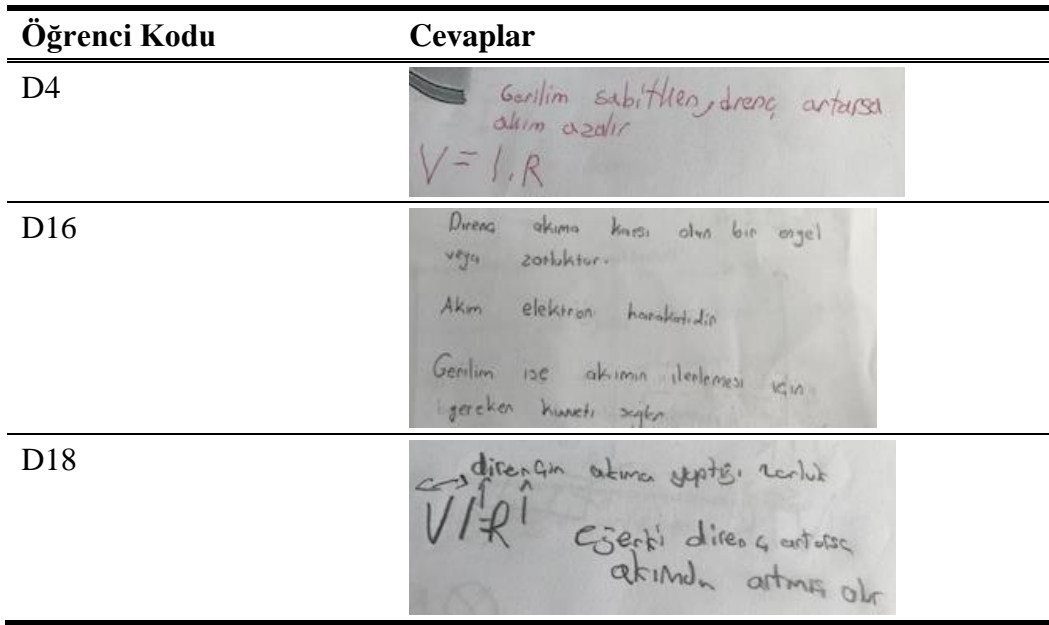 Öğrenci Kodu Cevaplar
D4
Gerilim sabitken, drenç artarsa
akım azalır
V = I.R
D16
Direnç akıma karşı olan bir engel
veya zorluktur.
Akım elektron harakatidir
Gerilim ise akımın ilerlemesi için
gereken kuvveti sağlar
D18
direnGin akıma yaptığı zorluk
eğerki direnç artarsa
akımda artmış olur